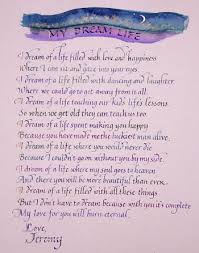 MY DREAM LIFE
I dream of a life filled with love and happiness
Where I can sit and gaze into your eyes
I dream of a life filled with dancing and laughter
Where we could go to get away from it all
I dream of a life teaching our kids life's lessons
So when we get old they can teach us too
I dream of a life spent making you happy
Because you have made me the luckiest man alive
I dream of a life where you would never die
Because I couldn't go on without you by my side
I dream of a life where my soul goes to heaven
And there you will be more beautiful than ever.
I dream of a life filled with all these things
But I don't have to dream because with you it's complete
My love for you will burn eternal.
Love,
Jeremy